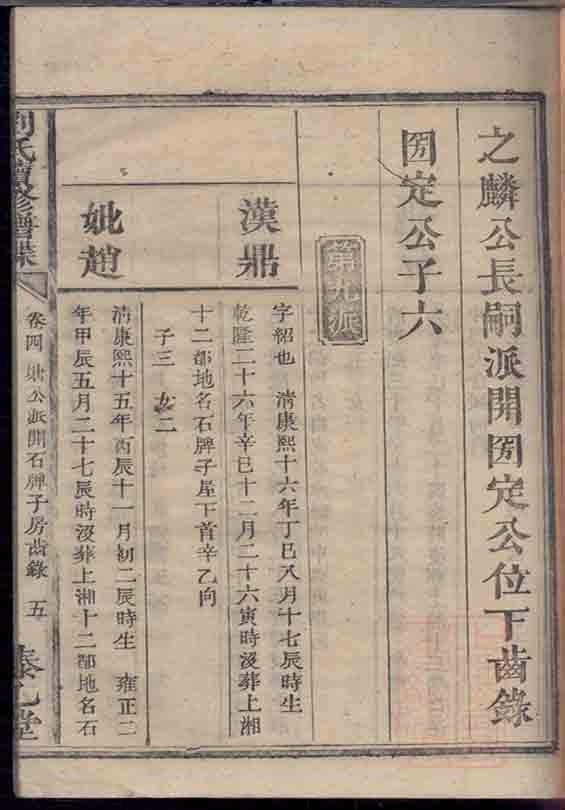 之麟公長嗣派開固定公位下齒錄
固定公子六
第九派
漢鼎
字紹也 清康熙十六年丁巳八月十七辰時生
乾隆二十六年辛巳十二月二十六寅時沒葬上湘
十二都地名石牌子屋下首辛乙向
子三 女二
妣趙
清康熙十五年丙辰十一月初二辰時生 雍正二
年甲辰五月二十七辰時沒葬上湘十二都地名石
氏續修譜牒
卷四 塘公派開石牌子房齒錄 五
堂